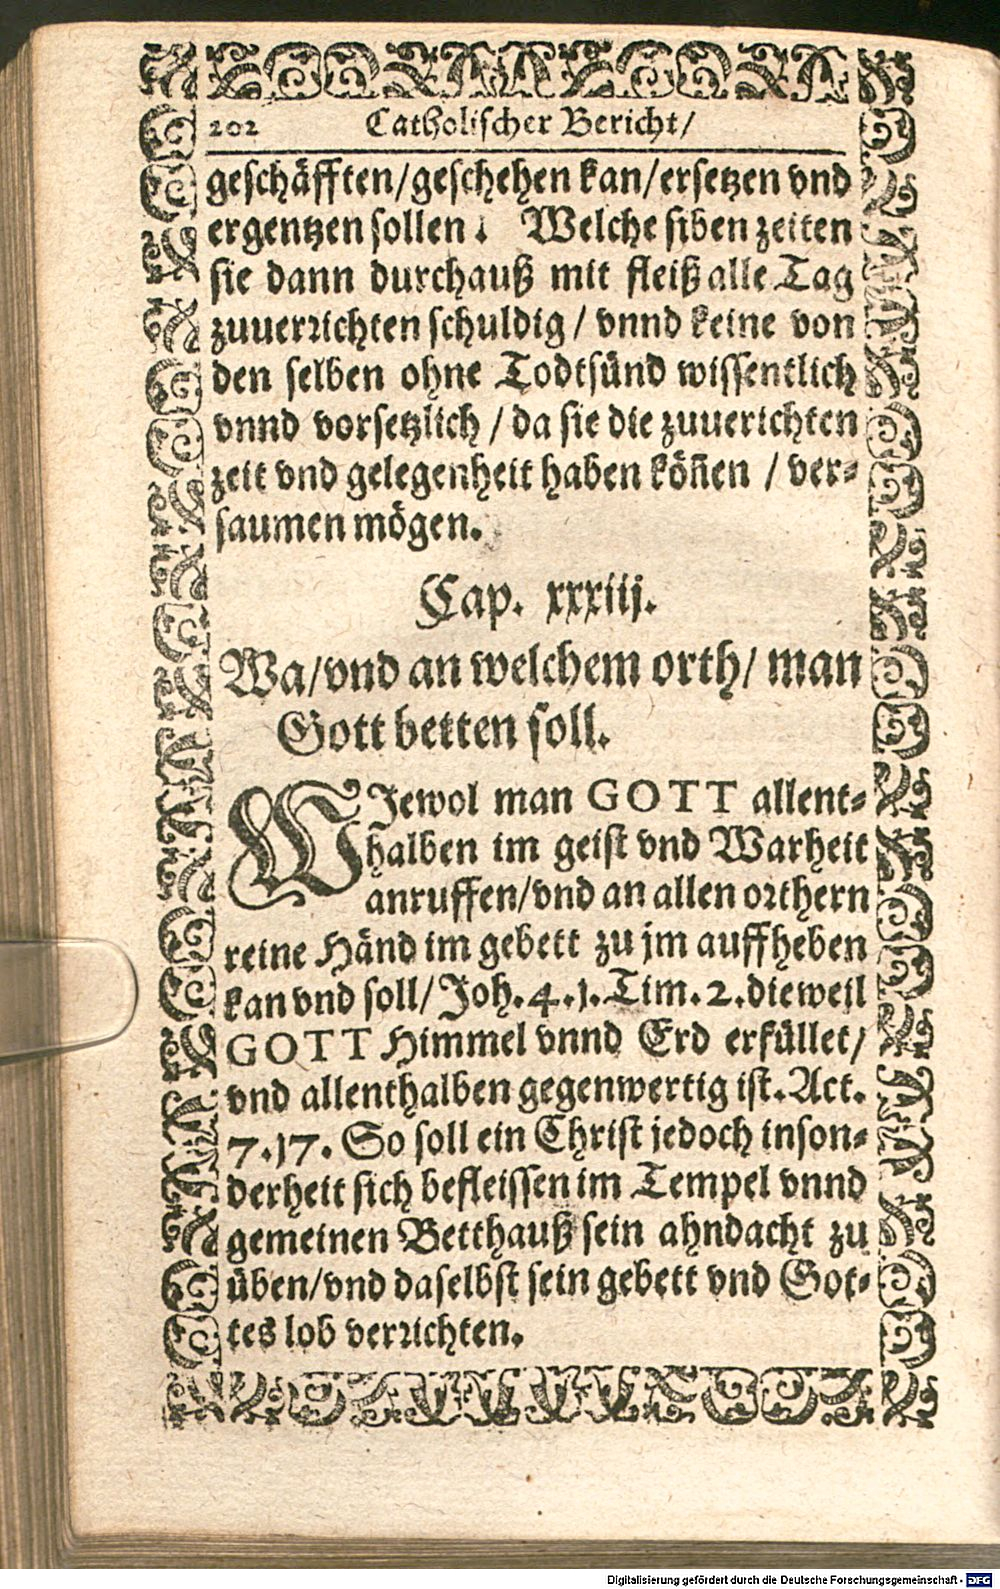 202 Catholischer Bericht/
geschäfften/geschehen kan/ersetzen vnd
ergentzen sollen. Welche siben zeiten
sie dann durchauß mit fleiß alle Tag
zuuerrichten schuldig / vnnd keine von
den selben ohne Todtsünd wissentlich
vnnd vorsetzlich / da sie die zuuerichten
zeit vnd gelegenheit haben köñen / ver-
saumen mögen.
Cap. xxxiij.
Wa/vnd an welchem orth/ man
Gott betten soll.
WIewol man GOTT allent-
halben im geist vnd Warheit
anruffen/vnd an allen orthern
reine Händ im gebett zu jm auffheben
kan vnd soll/ Joh. 4. 1. Tim. 2. dieweil
GOTT Himmel vnnd Erd erfüllet/
vnd allenthalben gegenwertig ist. Act.
7. 17. So soll ein Christ jedoch inson-
derheit sich befleissen im Tempel vnnd
gemeinen Betthauß sein ahndacht zu
üben/vnd daselbst sein gebett vnd Got-
tes lob verrichten.
Digitalisierung gefördert durch die Deutsche Forschungsgemeinschaft - DFG